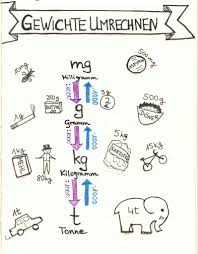 GEWICHTE UMRECHNEN
mg
Milligramm
10mg
500mg
:1000
·1000
g
Gramm
1g
250g
BUTTER
500g
:1000
·1000
kg
Kilogramm
1kg
80kg
5kg
15kg
:1000
·1000
t
Tonne
1t
4t